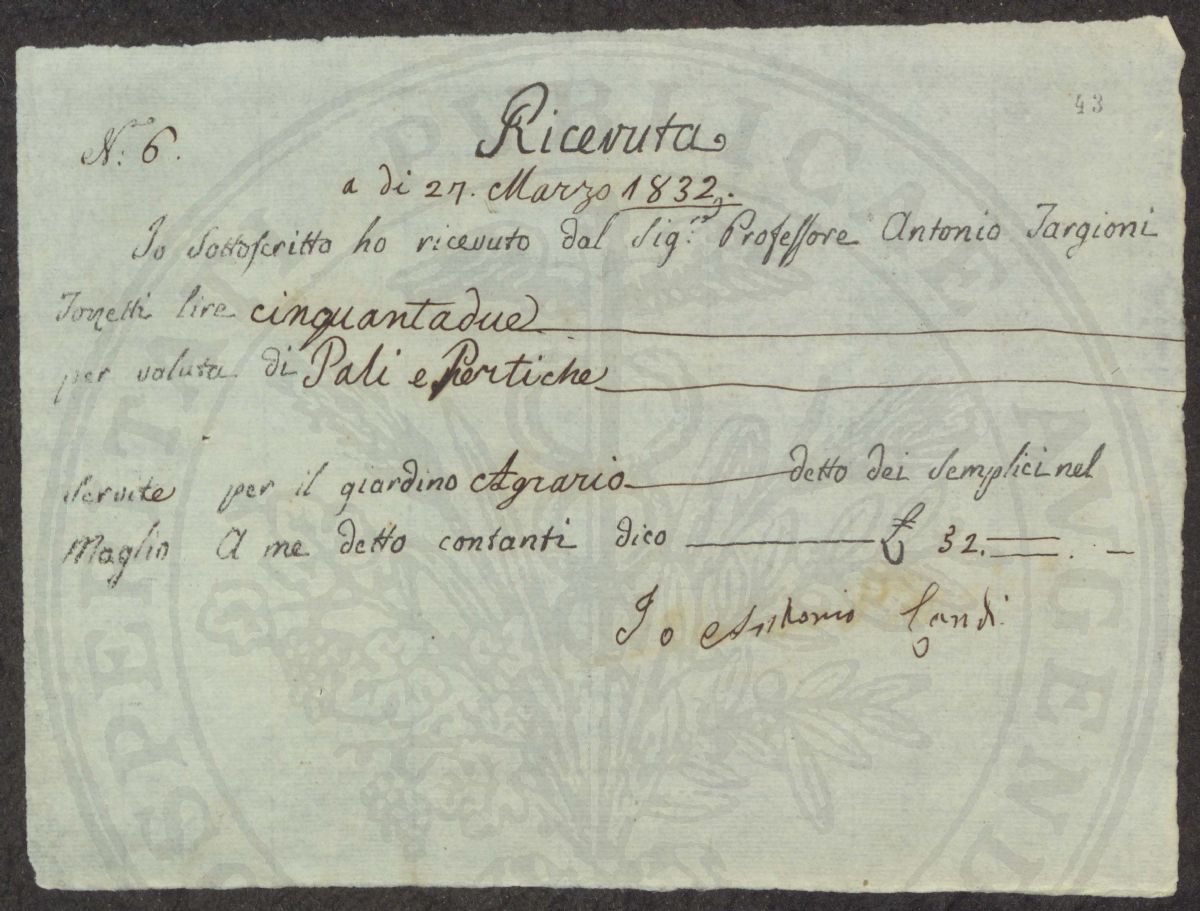 43
N.° 6. Ricevuta
a di 27. Marzo 1832.
Io Sottoscritto ho ricevuto dal Sig.re Professore Antonio Targioni
Tozzetti lire cinquantadue
per valuta di Pali e Pertiche
servite per il giardino Agrario detto dei Semplici nel
Maglio A me detto contanti dico £ 32.
Io Antonio Landi
PROSPERITATI PUBLICAE AUGENDAE